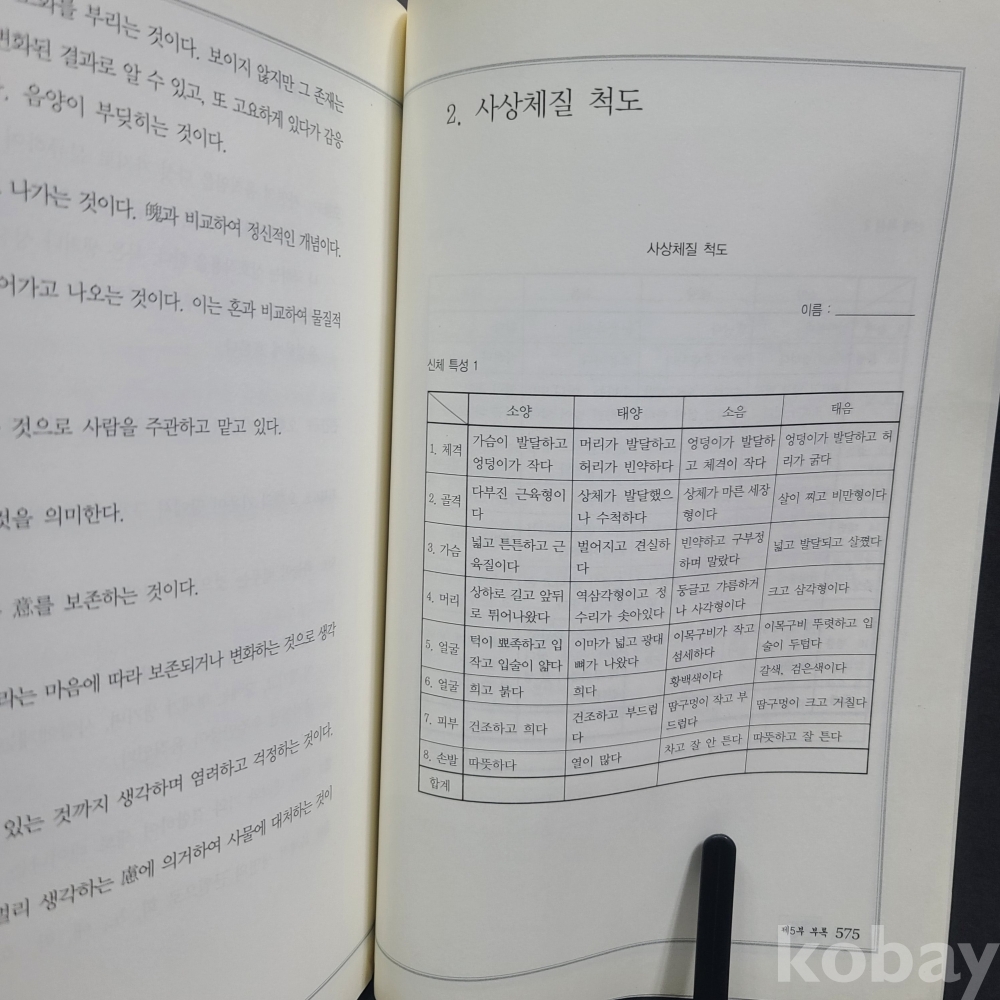 부리는 것이다. 보이지 않지만 그 존재는
변화된 결과로 알 수 있고, 또 고요하게 있다가 감응
음양이 부딪히는 것이다.
나가는 것이다. 魄과 비교하여 정신적인 개념이다.
어가고 나오는 것이다. 이는 혼과 비교하여 물질적
것으로 사람을 주관하고 맡고 있다.
것을 의미한다.
意를 보존하는 것이다.
라는 마음에 따라 보존되거나 변화하는 것으로 생각
있는 것까지 생각하며 염려하고 걱정하는 것이다.
멀리 생각하는 慮에 의거하여 사물에 대처하는 것이
2. 사상체질 척도
사상체질 척도
이름 :
신체 특성 1
소양 태양 소음 태음
1. 체격 가슴이 발달하고 머리가 발달하고 엉덩이가 발달하 엉덩이가 발달하고 허
엉덩이가 작다 허리가 빈약하다 고 체격이 작다 리가 굵다
2. 골격 다부진 근육형이 상체가 발달했으 상체가 마른 세장 살이 찌고 비만형이다
다 나 수척하다 형이다
3. 가슴 넓고 튼튼하고 근 벌어지고 견실하 빈약하고 구부정 넓고 발달되고 살쪘다
육질이다 다 하며 말랐다
4. 머리 상하로 길고 앞뒤 역삼각형이고 정 둥글고 갸름하거 크고 삼각형이다
로 튀어나왔다 수리가 솟아있다 나 사각형이다
5. 얼굴 턱이 뾰족하고 입 이마가 넓고 광대 이목구비가 작고 이목구비 뚜렷하고 입
작고 입술이 얇다 뼈가 나왔다 섬세하다 술이 두텁다
6. 얼굴 희고 붉다 희다 황백색이다 갈색, 검은색이다
7. 피부 건조하고 희다 건조하고 부드럽 땀구멍이 작고 부 땀구멍이 크고 거칠다
다 드럽다
8. 손발 따뜻하다 열이 많다 차고 잘 안 튼다 따뜻하고 잘 튼다
합계
제5부 부록 575
kobay